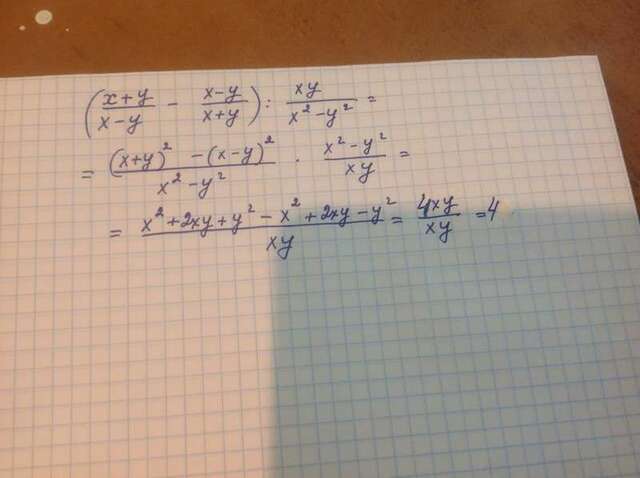 ((x+y)/(x-y) - (x-y)/(x+y)) : xy/(x²-y²) =
= ((x+y)² - (x-y)²)/(x²-y²) · (x²-y²)/xy =
= (x²+2xy+y²-x²+2xy-y²)/xy = 4xy/xy = 4